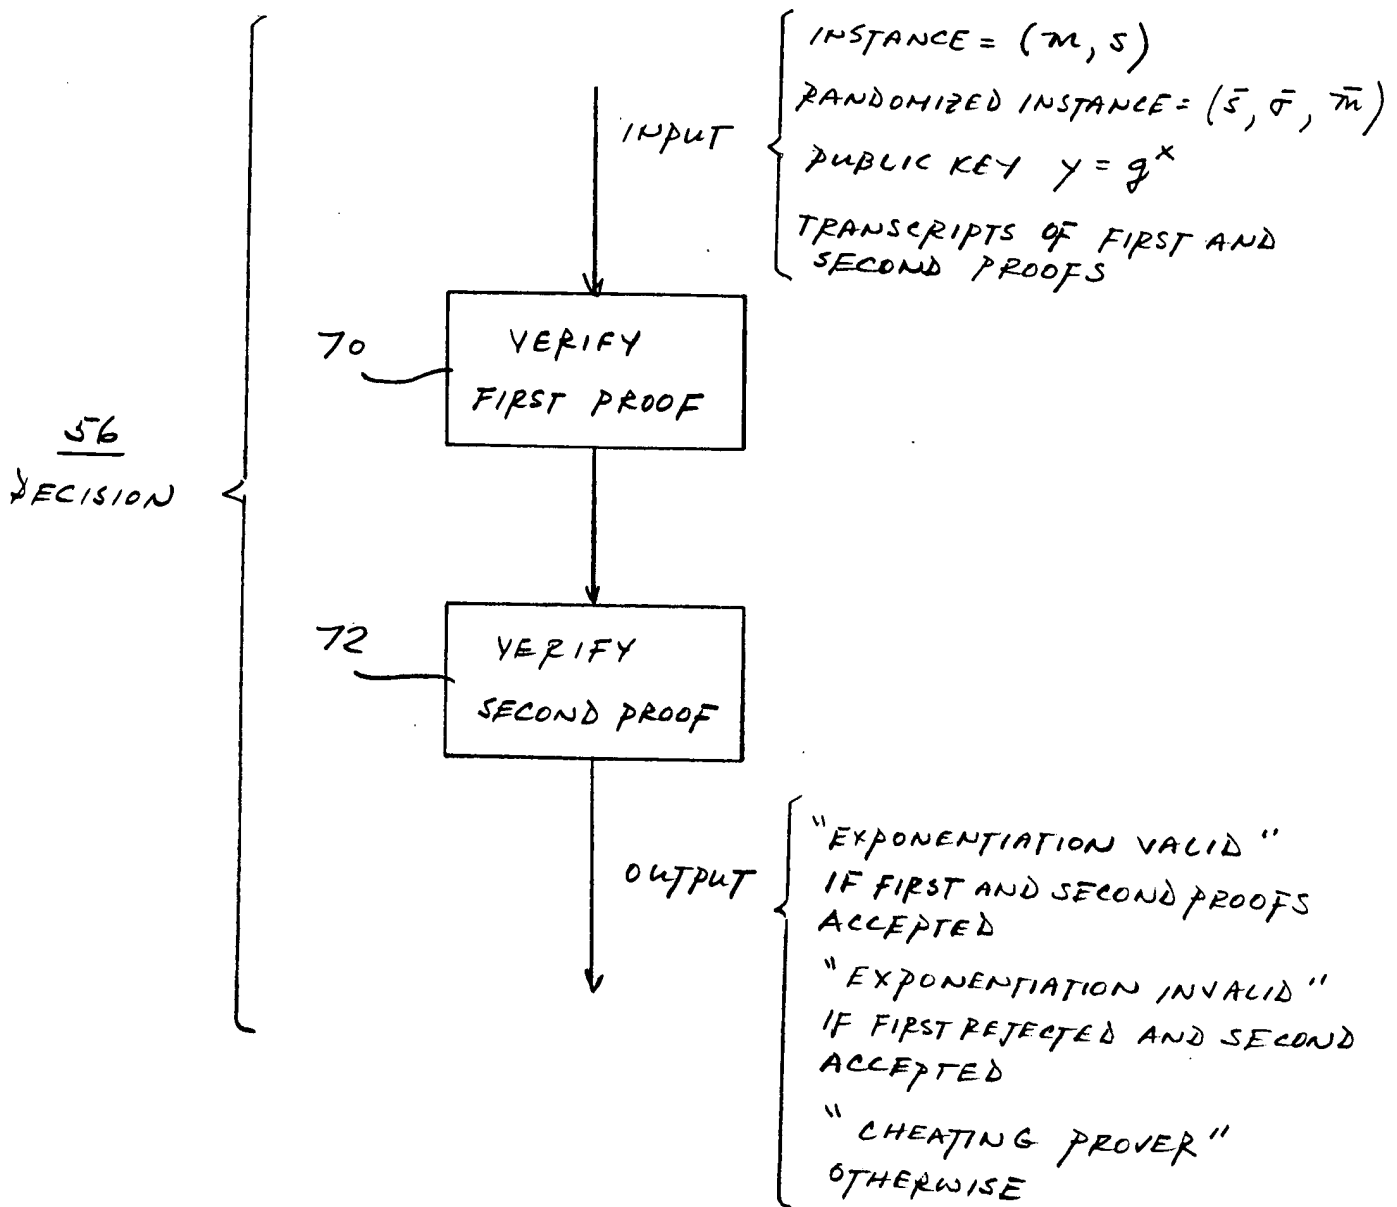 INSTANCE = (m, s)
RANDOMIZED INSTANCE = (s̄, σ̄, m̄)
INPUT
PUBLIC KEY y = g^x
TRANSCRIPTS OF FIRST AND
SECOND PROOFS
70
VERIFY
FIRST PROOF
56
DECISION
72
VERIFY
SECOND PROOF
OUTPUT
"EXPONENTIATION VALID"
IF FIRST AND SECOND PROOFS
ACCEPTED
"EXPONENTIATION INVALID"
IF FIRST REJECTED AND SECOND
ACCEPTED
"CHEATING PROVER"
OTHERWISE